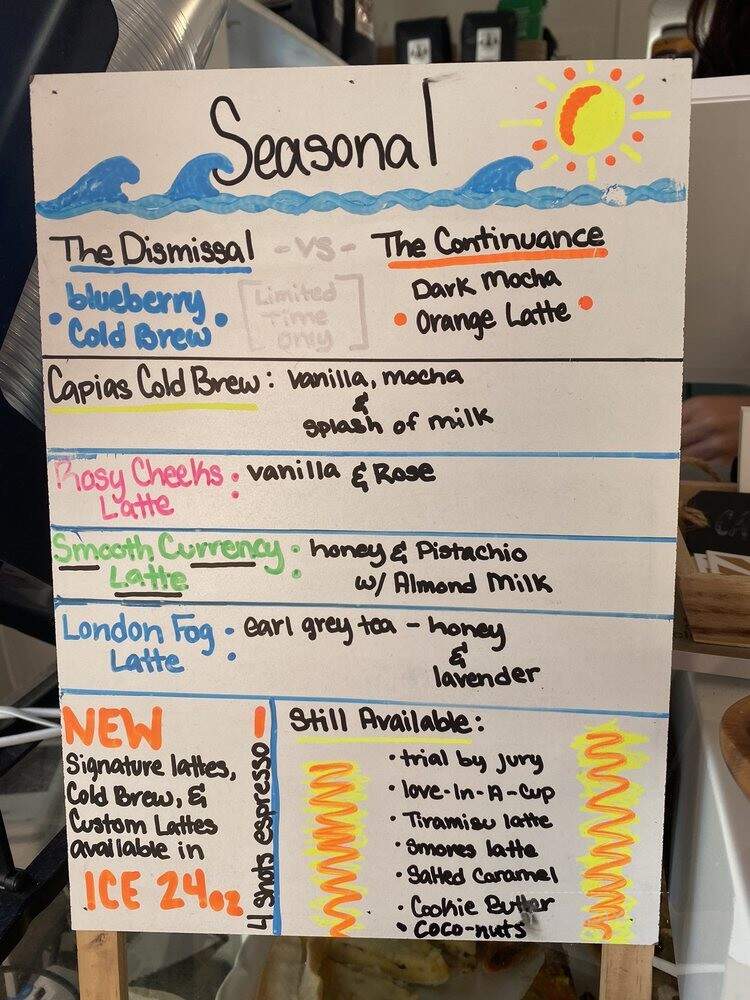 Seasonal
The Dismissal -VS- The Continuance
blueberry
• Cold Brew •
[Limited
Time
only]
Dark Mocha
• Orange Latte •
Capias Cold Brew: Vanilla, mocha
&
splash of milk
Rosy Cheeks : vanilla & Rose
Latte
Smooth Currency : honey & Pistachio
Latte w/ Almond Milk
London Fog : earl grey tea - honey
Latte &
lavender
NEW !
Signature lattes,
Cold Brew, &
Custom Lattes
available in
ICE 24oz
4 shots espresso
Still Available:
• trial by jury
• love-In-A-Cup
• Tiramisu latte
• Smores latte
• Salted Caramel
• Cookie Butter
• Coco-nuts